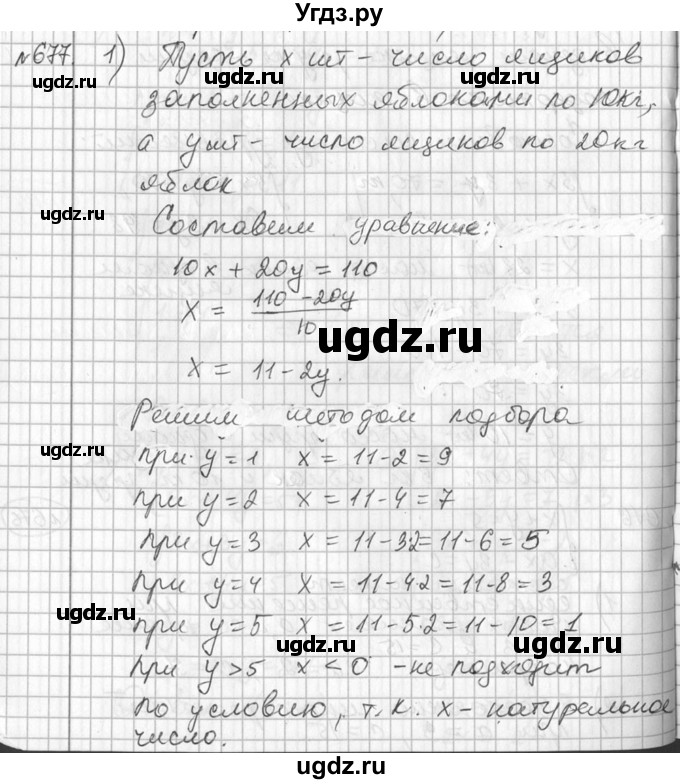 Угдз.ру
№677. 1) Пусть х шт - число ящиков
заполненных яблоками по 10кг,
а у шт - число ящиков по 20кг
яблок
Составим уравнение:
10x + 20y = 110
x = \frac{110 - 20y}{10}
x = 11 - 2y.
Решим методом подбора
при y = 1 x = 11 - 2 = 9
при y = 2 x = 11 - 4 = 7
при y = 3 x = 11 - 3·2 = 11 - 6 = 5
при y = 4 x = 11 - 4·2 = 11 - 8 = 3
при y = 5 x = 11 - 5·2 = 11 - 10 = 1
при y > 5 x < 0 - не подходит
по условию, т.к. x - натуральное
число.
ugdz.ru
ugdz.ru
ugdz.ru
ugdz.ru
ugdz.ru
ugdz.ru
ugdz.ru
ugdz.ru
ugdz.ru
ugdz.ru
©ugdz.ru